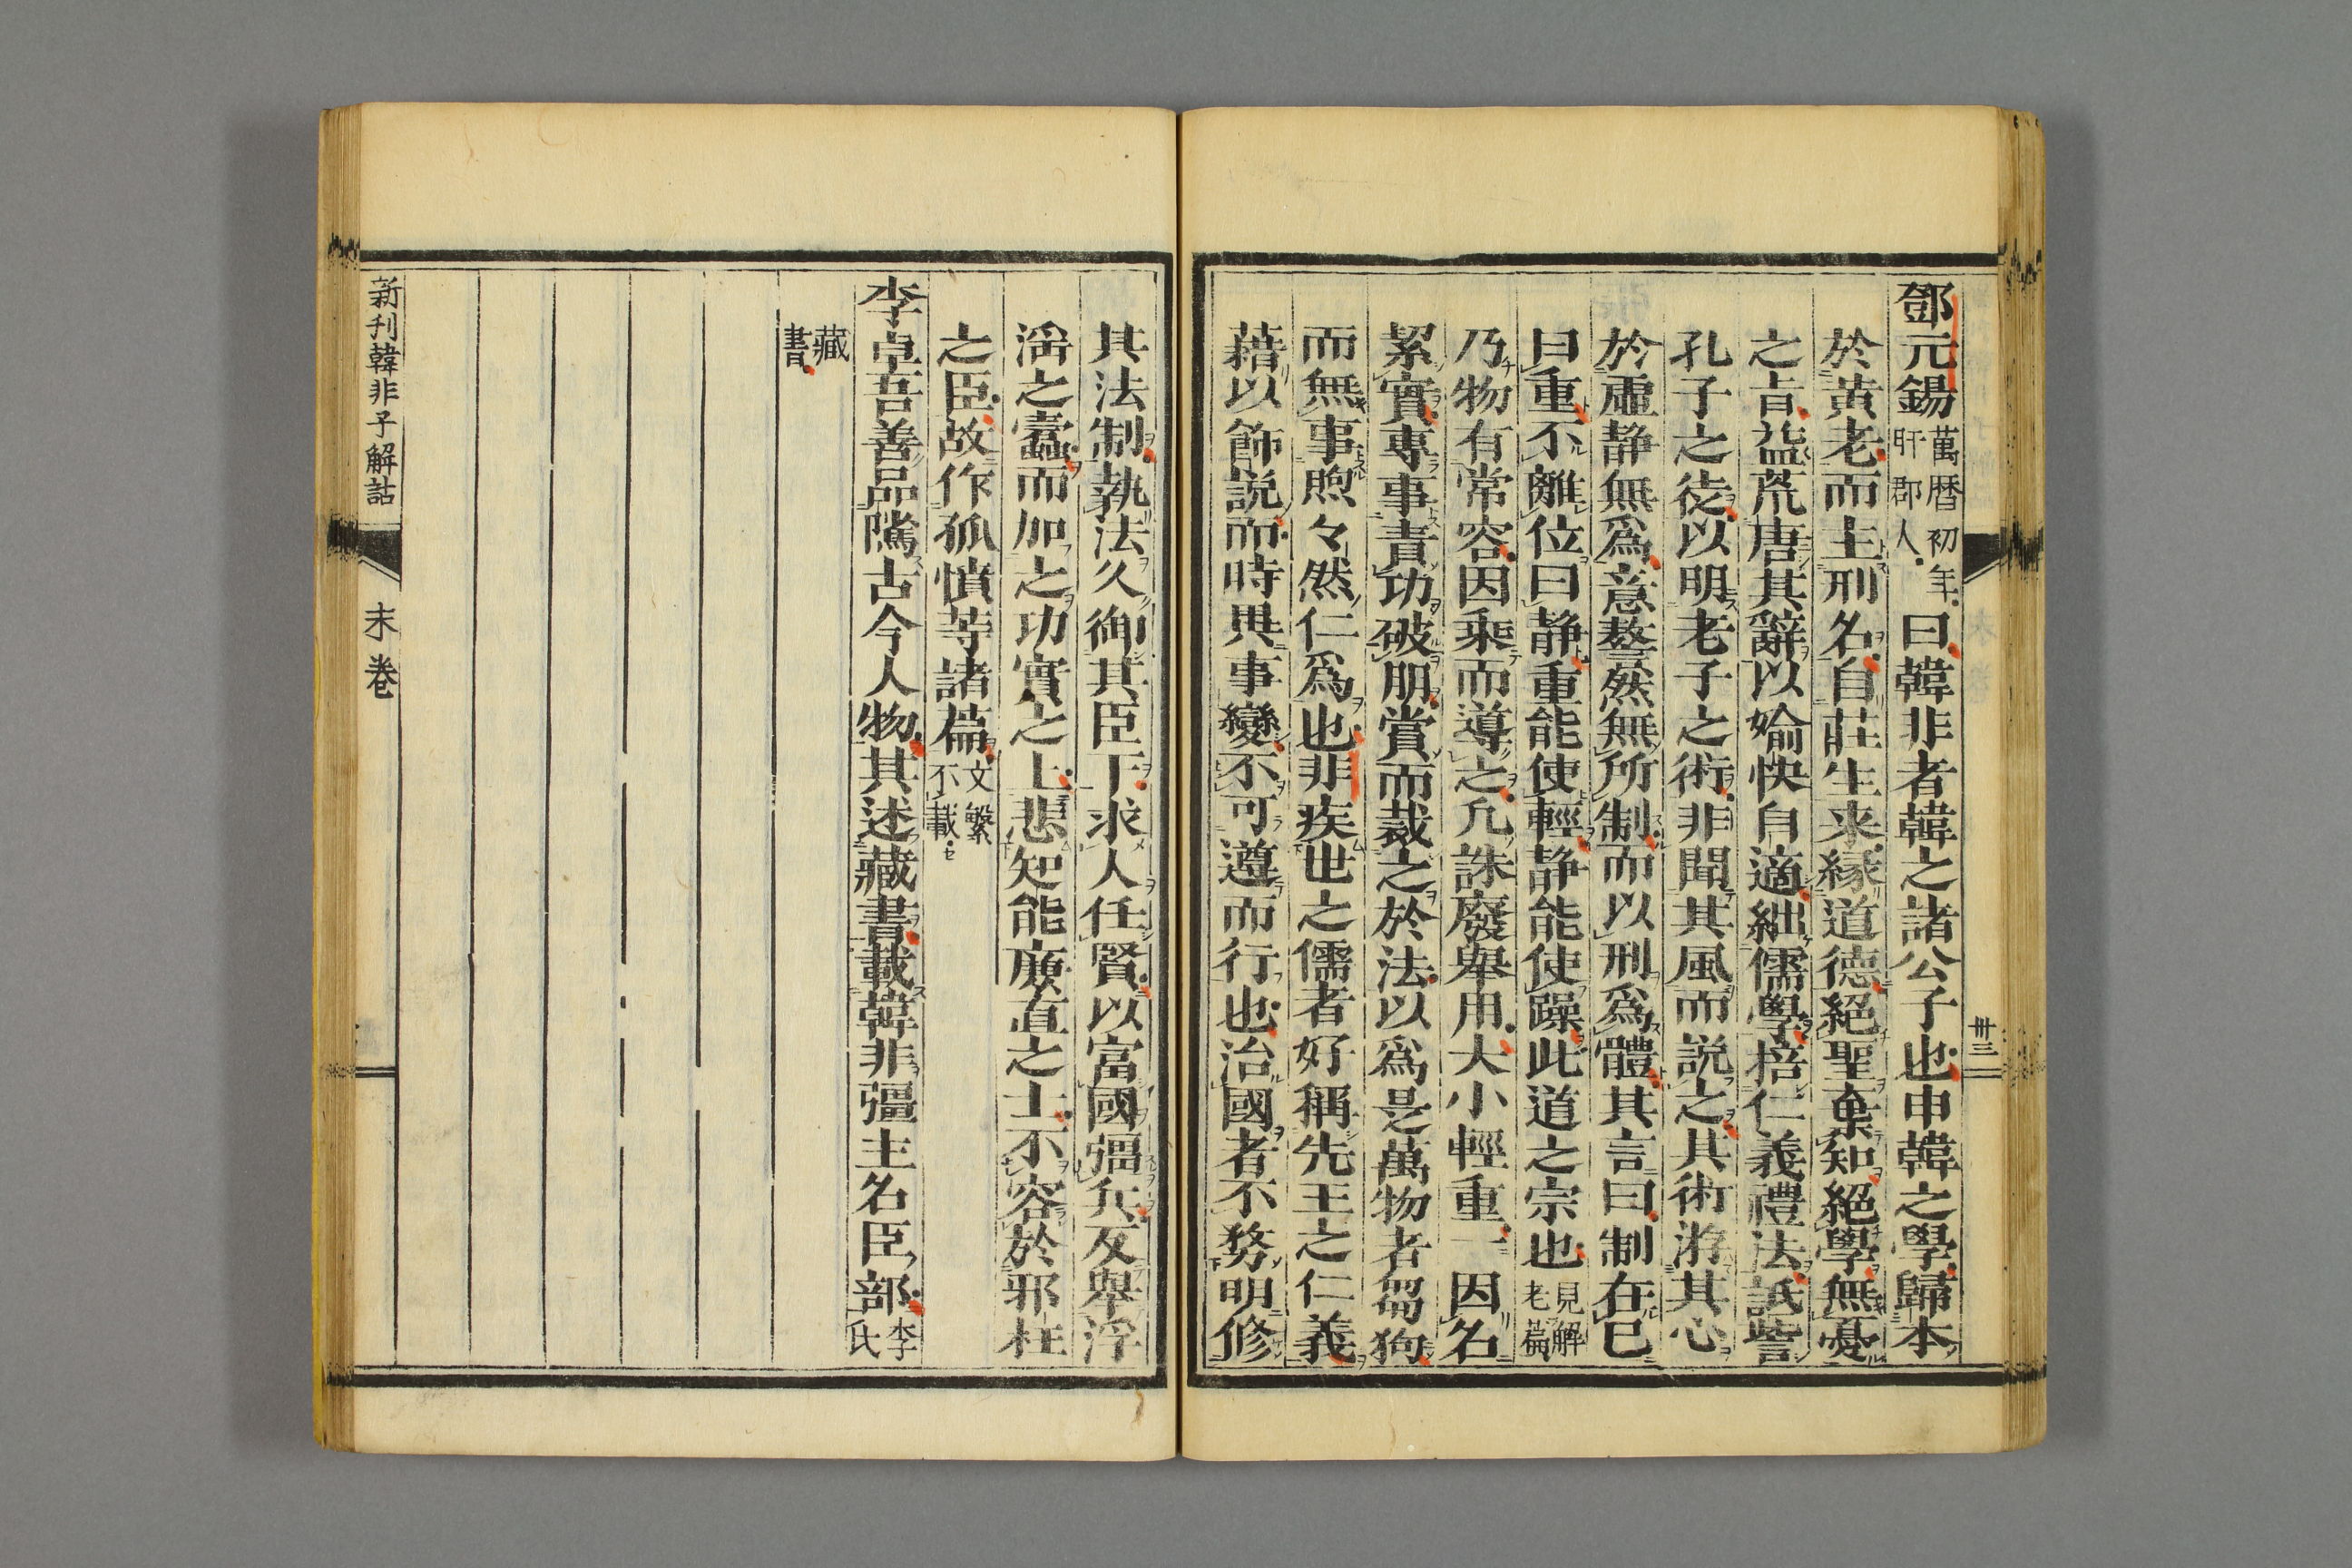 卅三
鄧元錫萬暦初年盱郡人曰韓非者韓之諸公子也申韓之學歸本
於黄老而主刑名自莊生来縁道德絕聖棄知絕學無憂
之旨益荒唐其辭以婾快自適絀儒學掊仁義禮法詆訾
孔子之徒以明老子之術非聞其風而説之其術游其心
於虛静無爲意謷然無所制而以刑爲體其言曰制在已
曰重不離位曰静重能使輕静能使躁此道之宗也見解老篇
乃物有常容因乘而導之允誅廢舉用大小輕重一因名
絜實專事責功破朋賞而裁之於法以爲是萬物者芻狗
而無事煦々然仁爲也非疾世之儒者好稱先王之仁義
藉以飾説而時異事變不可遵而行也治國者不務明修
其法制執法久御其臣下求人任賢以富國彊兵反舉浮
淫之蠹而加之功實之上悲知能廉直之士不容於邪枉
之臣故作孤憤等諸篇文繁不載
李卓吾善品隲古今人物其述藏書載韓非彊主名臣部李氏
藏書
新刊韓非子解詁
末卷